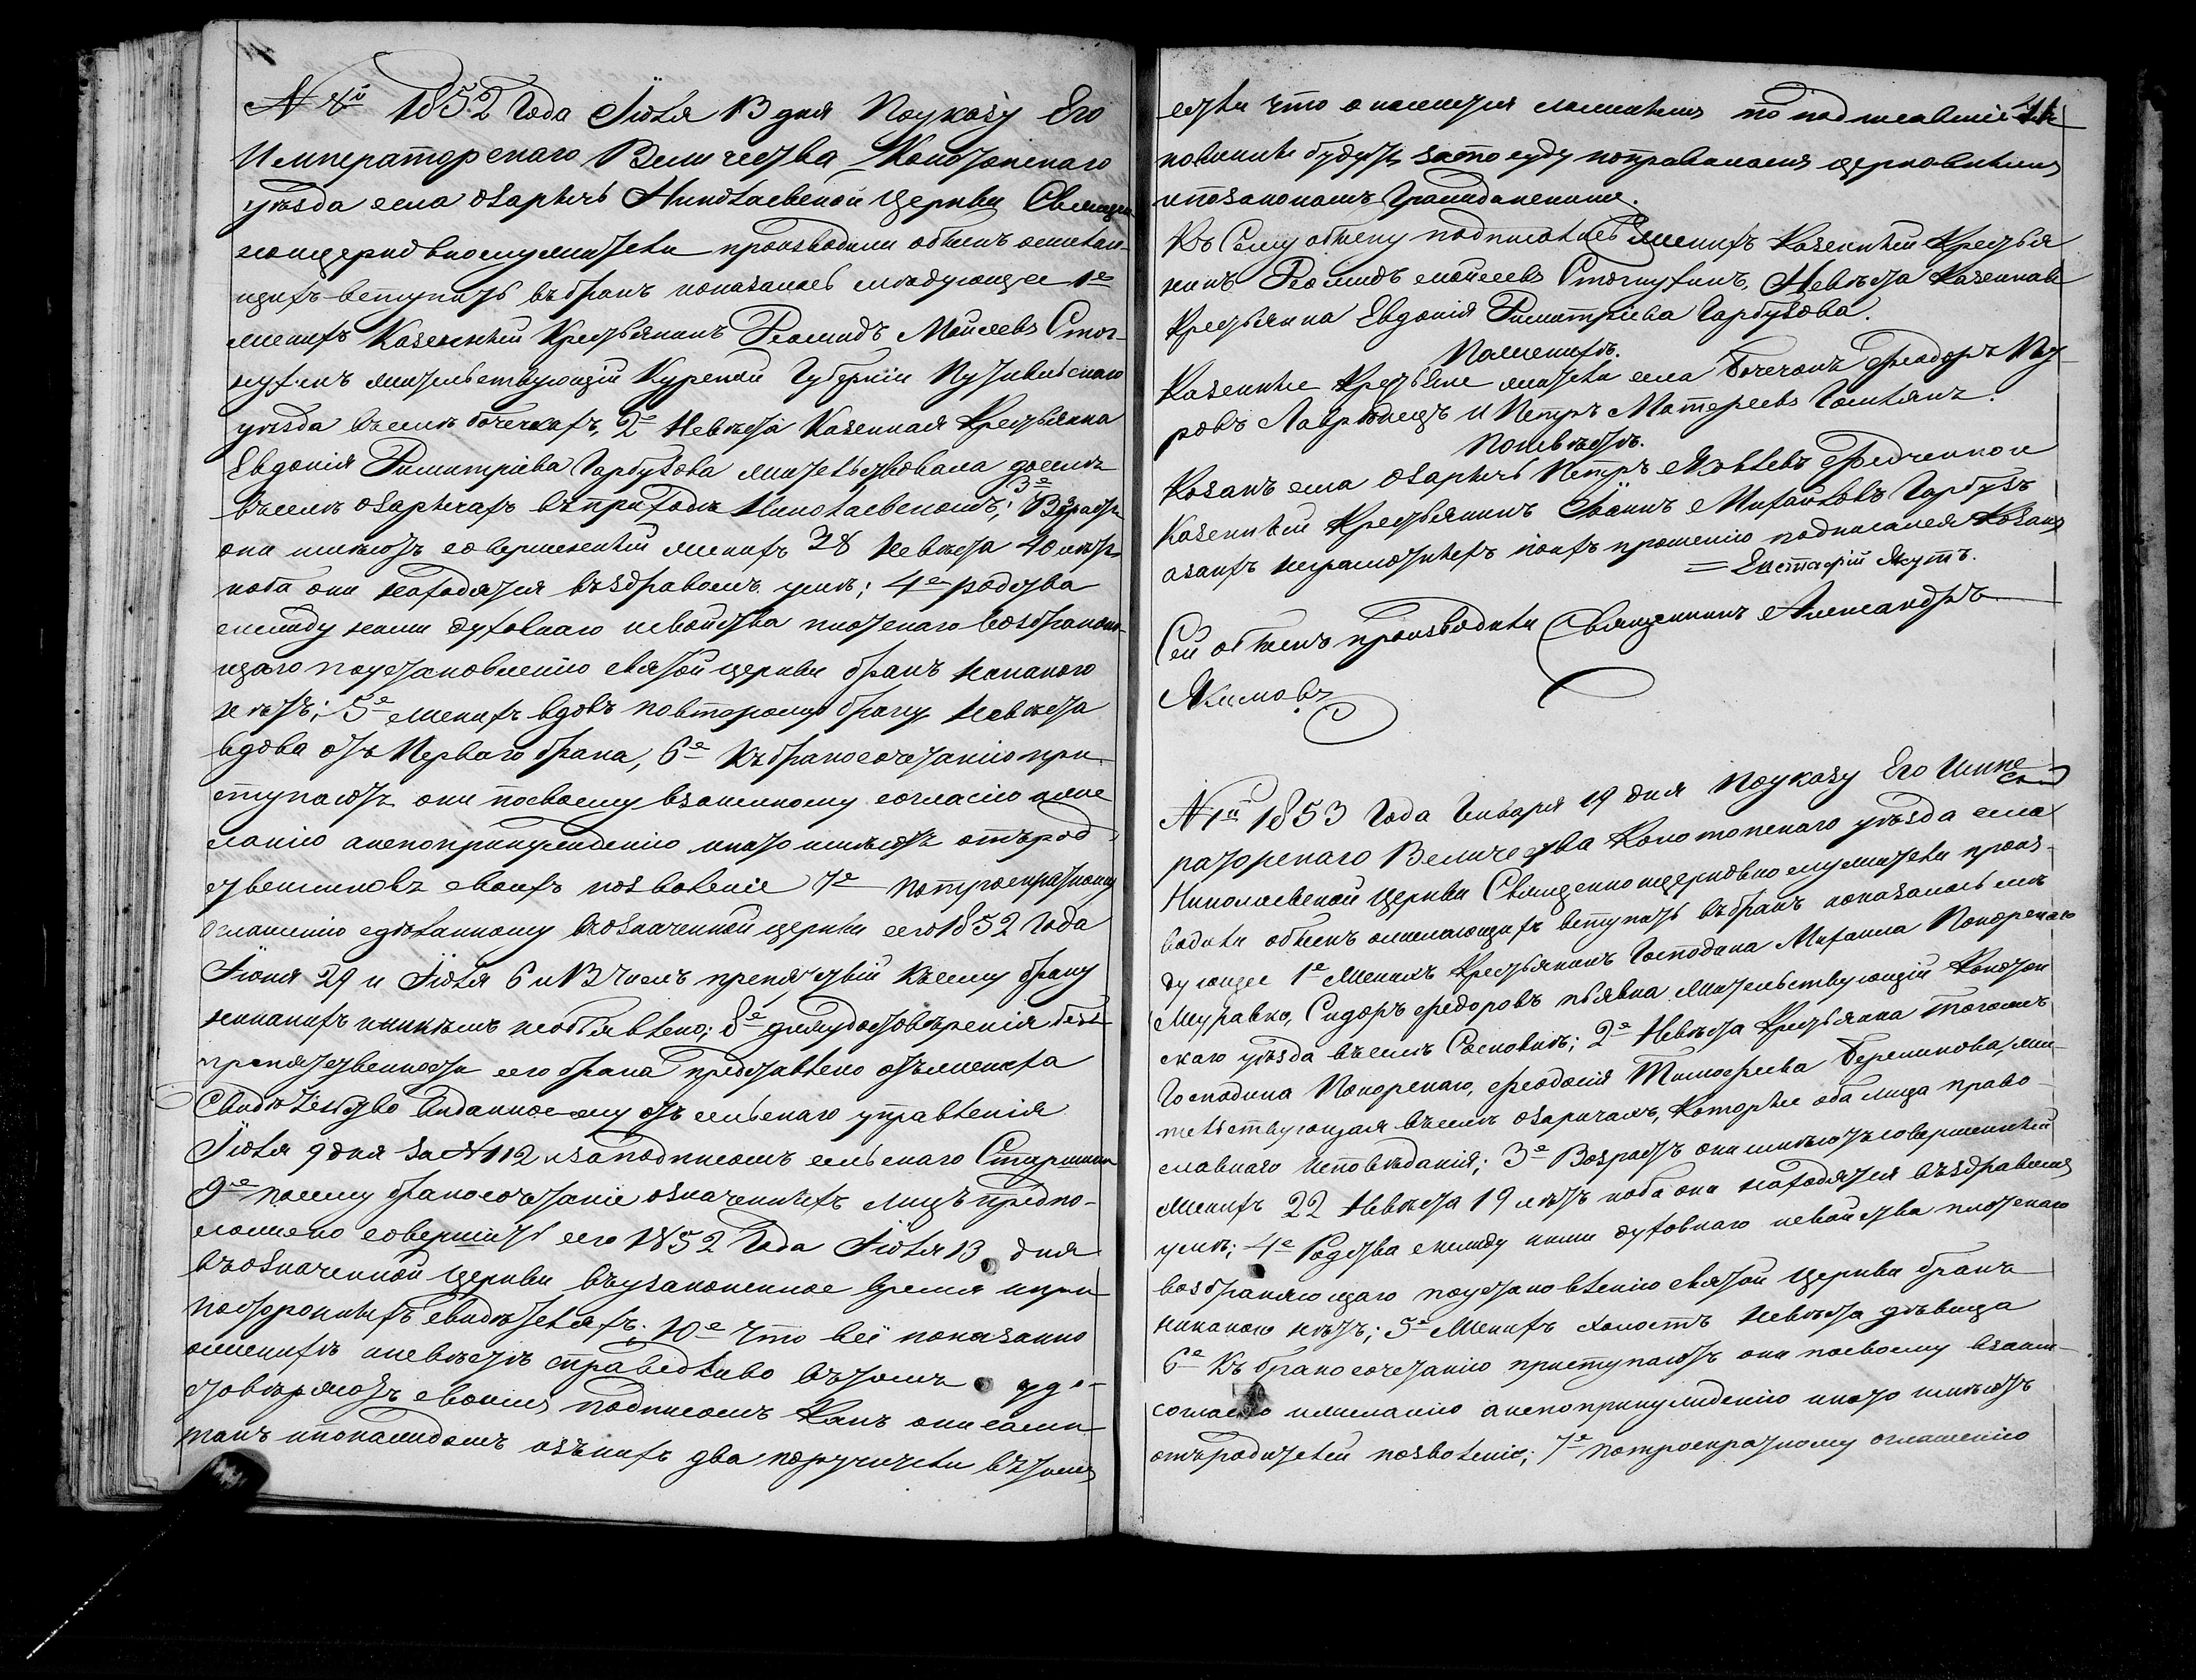 № 8й 1852 Года Іюля 13 дня По указу Его
Императорскаго Величества Конотопскаго
уѣзда села Озаричь Николаевской Церкви Священ
ноцерковнослужители производили обыскъ о желаю-
щихъ вступить въ бракъ и оказалось слѣдующее 1е
Женихъ Казенный Крестьянинъ Моисеевъ Стог-
нухинъ жительствующій Курской Губерніи Путивльскаго
уѣзда въ селѣ бочечкахъ, 2е Невѣста Казенная Крестьянка
Евдокія Димитріева Гарбузова жительствовала доселѣ
въ селѣ Озаричахъ въ приходѣ Николаевскомъ; 3е Возрастъ
они имѣютъ совершенный женихъ 38 Невѣста 40 лѣтъ
и оба они находятся въ здравомъ умѣ; 4е родства
между ними духовнаго и свойства плотскаго возбраняю-
щаго по установленію святой церкви бракъ никакого
нѣтъ; 5е Женихъ вдовъ по второму браку Невѣста
вдова отъ Перваго брака, 6е Къ бракосочетанію при-
ступаютъ они по своему взаимному согласію и же
ланію а не по принужденію и на то имѣютъ отъ род
ственниковъ своихъ позволеніе 7е По троекратному
оглашенію сдѣланному въ означенной церкви сего 1852 Года
Іюня 29 и Іюля 6 и 13 числъ препятствій къ сему браку
никакихъ и никѣмъ не объявлено; 8е для удостовѣренія без
препятственности сего брака представлено отъ жениха
Свидѣтельство выданное ему отъ сельскаго управленія
Іюля 9 дня за № 112 и за подписомъ сельскаго Старшины
9е посему бракосочетаніе означенныхъ лицъ предпо-
ложено совершить сего 1852 Года Іюля 13 дня
въ означенной Церкви въ узаконенное время и при
постороннихъ свидѣтеляхъ; 10е Что всё показанно
о женихѣ и невѣстѣ справедливо въ томъ удо-
стовѣряютъ своимъ подписомъ Какъ они сами
такъ и по каждомъ изъ нихъ два поручителя въ томъ
естьли что окажется ложнымъ то подписавшіе 41
повинны будутъ за то суду по правиламъ церковнымъ
и по законамъ Гражданскимъ.
Къ Сему обыску подписались Женихъ Казенный Крестья
нинъ Моисеевъ Стогнухинъ, Невѣста Казенная
Крестьянка Евдокія Димитріева Гарбузова.
По женихѣ.
Казенные Крестьяне жители села Бочечокъ Феодоръ
ровъ и Петръ Матфеевъ
По невѣстѣ.
Козакъ села Озаричь Петръ Яковлевъ Федченко и
Казенный Крестьянинъ Іоаннъ Михайловъ Гарбузъ
а за ихъ неграмотныхъ по ихъ прошенію подписался Козакъ
= Евстафій Якутъ.
Сей обыскъ производили Священникъ Александръ
Якимовъ
№ 1й 1853 Года Генваря 19 дня По указу Его Импе
раторскаго Величества Конотопскаго уѣзда села
Николаевской Церкви Священноцерковнослужители произ-
водили обыскъ о желающихъ вступить въ бракъ и оказалось слѣ
дующее 1е Женихъ Крестьянинъ Господина Михаила Покорскаго
Журавко, Сидоръ Федоровъ пьявка жительствующій Конотоп
скаго уѣзда въ селѣ Сосновкѣ; 2е Невѣста Крестьянка тогожъ
Господина Покорскаго, Феодосія Тимофеева жи-
тельствующая въ селѣ Озаричахъ, Которые оба лица право-
славнаго исповѣданія; 3е Возрастъ они имѣютъ совершенный
Женихъ 22 Невѣста 19 лѣтъ и оба они находятся въ здравомъ
умѣ; 4е Родства между ними духовнаго и свойства плотскаго
возбраняющаго по установленію святой Церкви бракъ
никакого нѣтъ; 5е Женихъ холостъ Невѣста дѣвица
6е Къ бракосочетанію приступаютъ они по своему взаим-
согласію и желанію а не по принужденію и на то имѣютъ
отъ родителей позволеніе; 7е По троекратному оглашенію